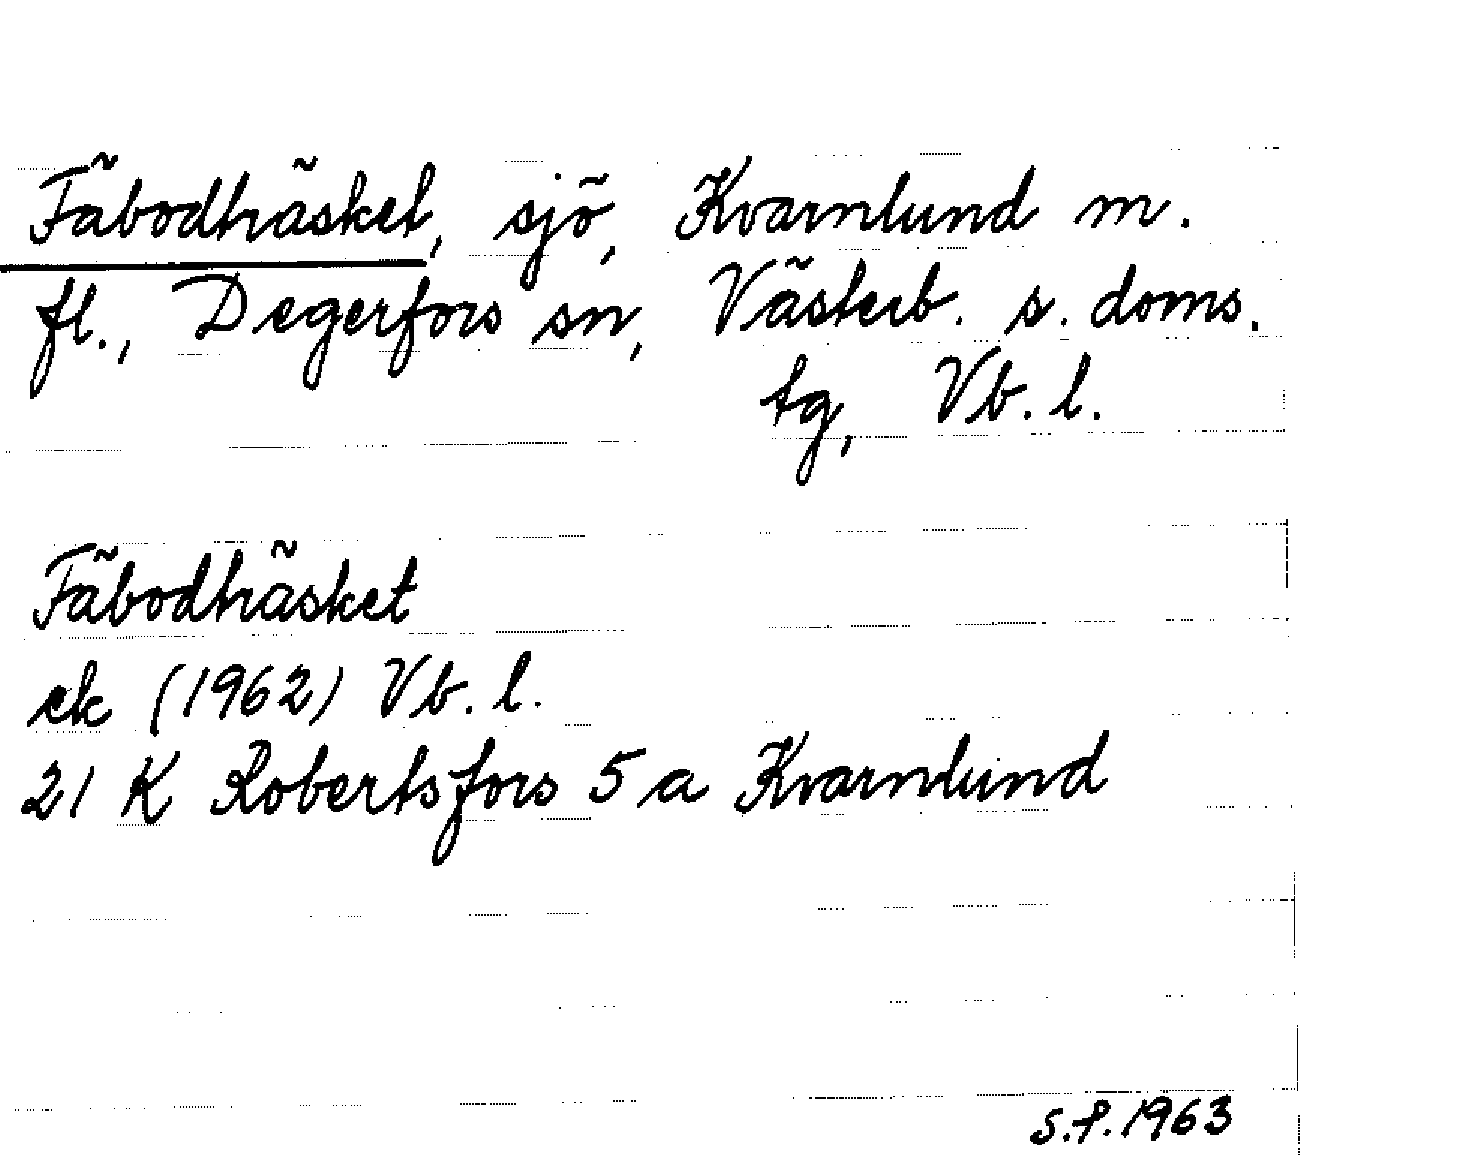 Fäbodträsket, sjö, Kvarnlund m.
fl., Degerfors sn, Västerb. s. doms.
tg, Vb. l.
Fäbodträsket
ek (1962) Vb. l.
21 K Robertsfors 5 a Kvarnlund
S.P. 1963